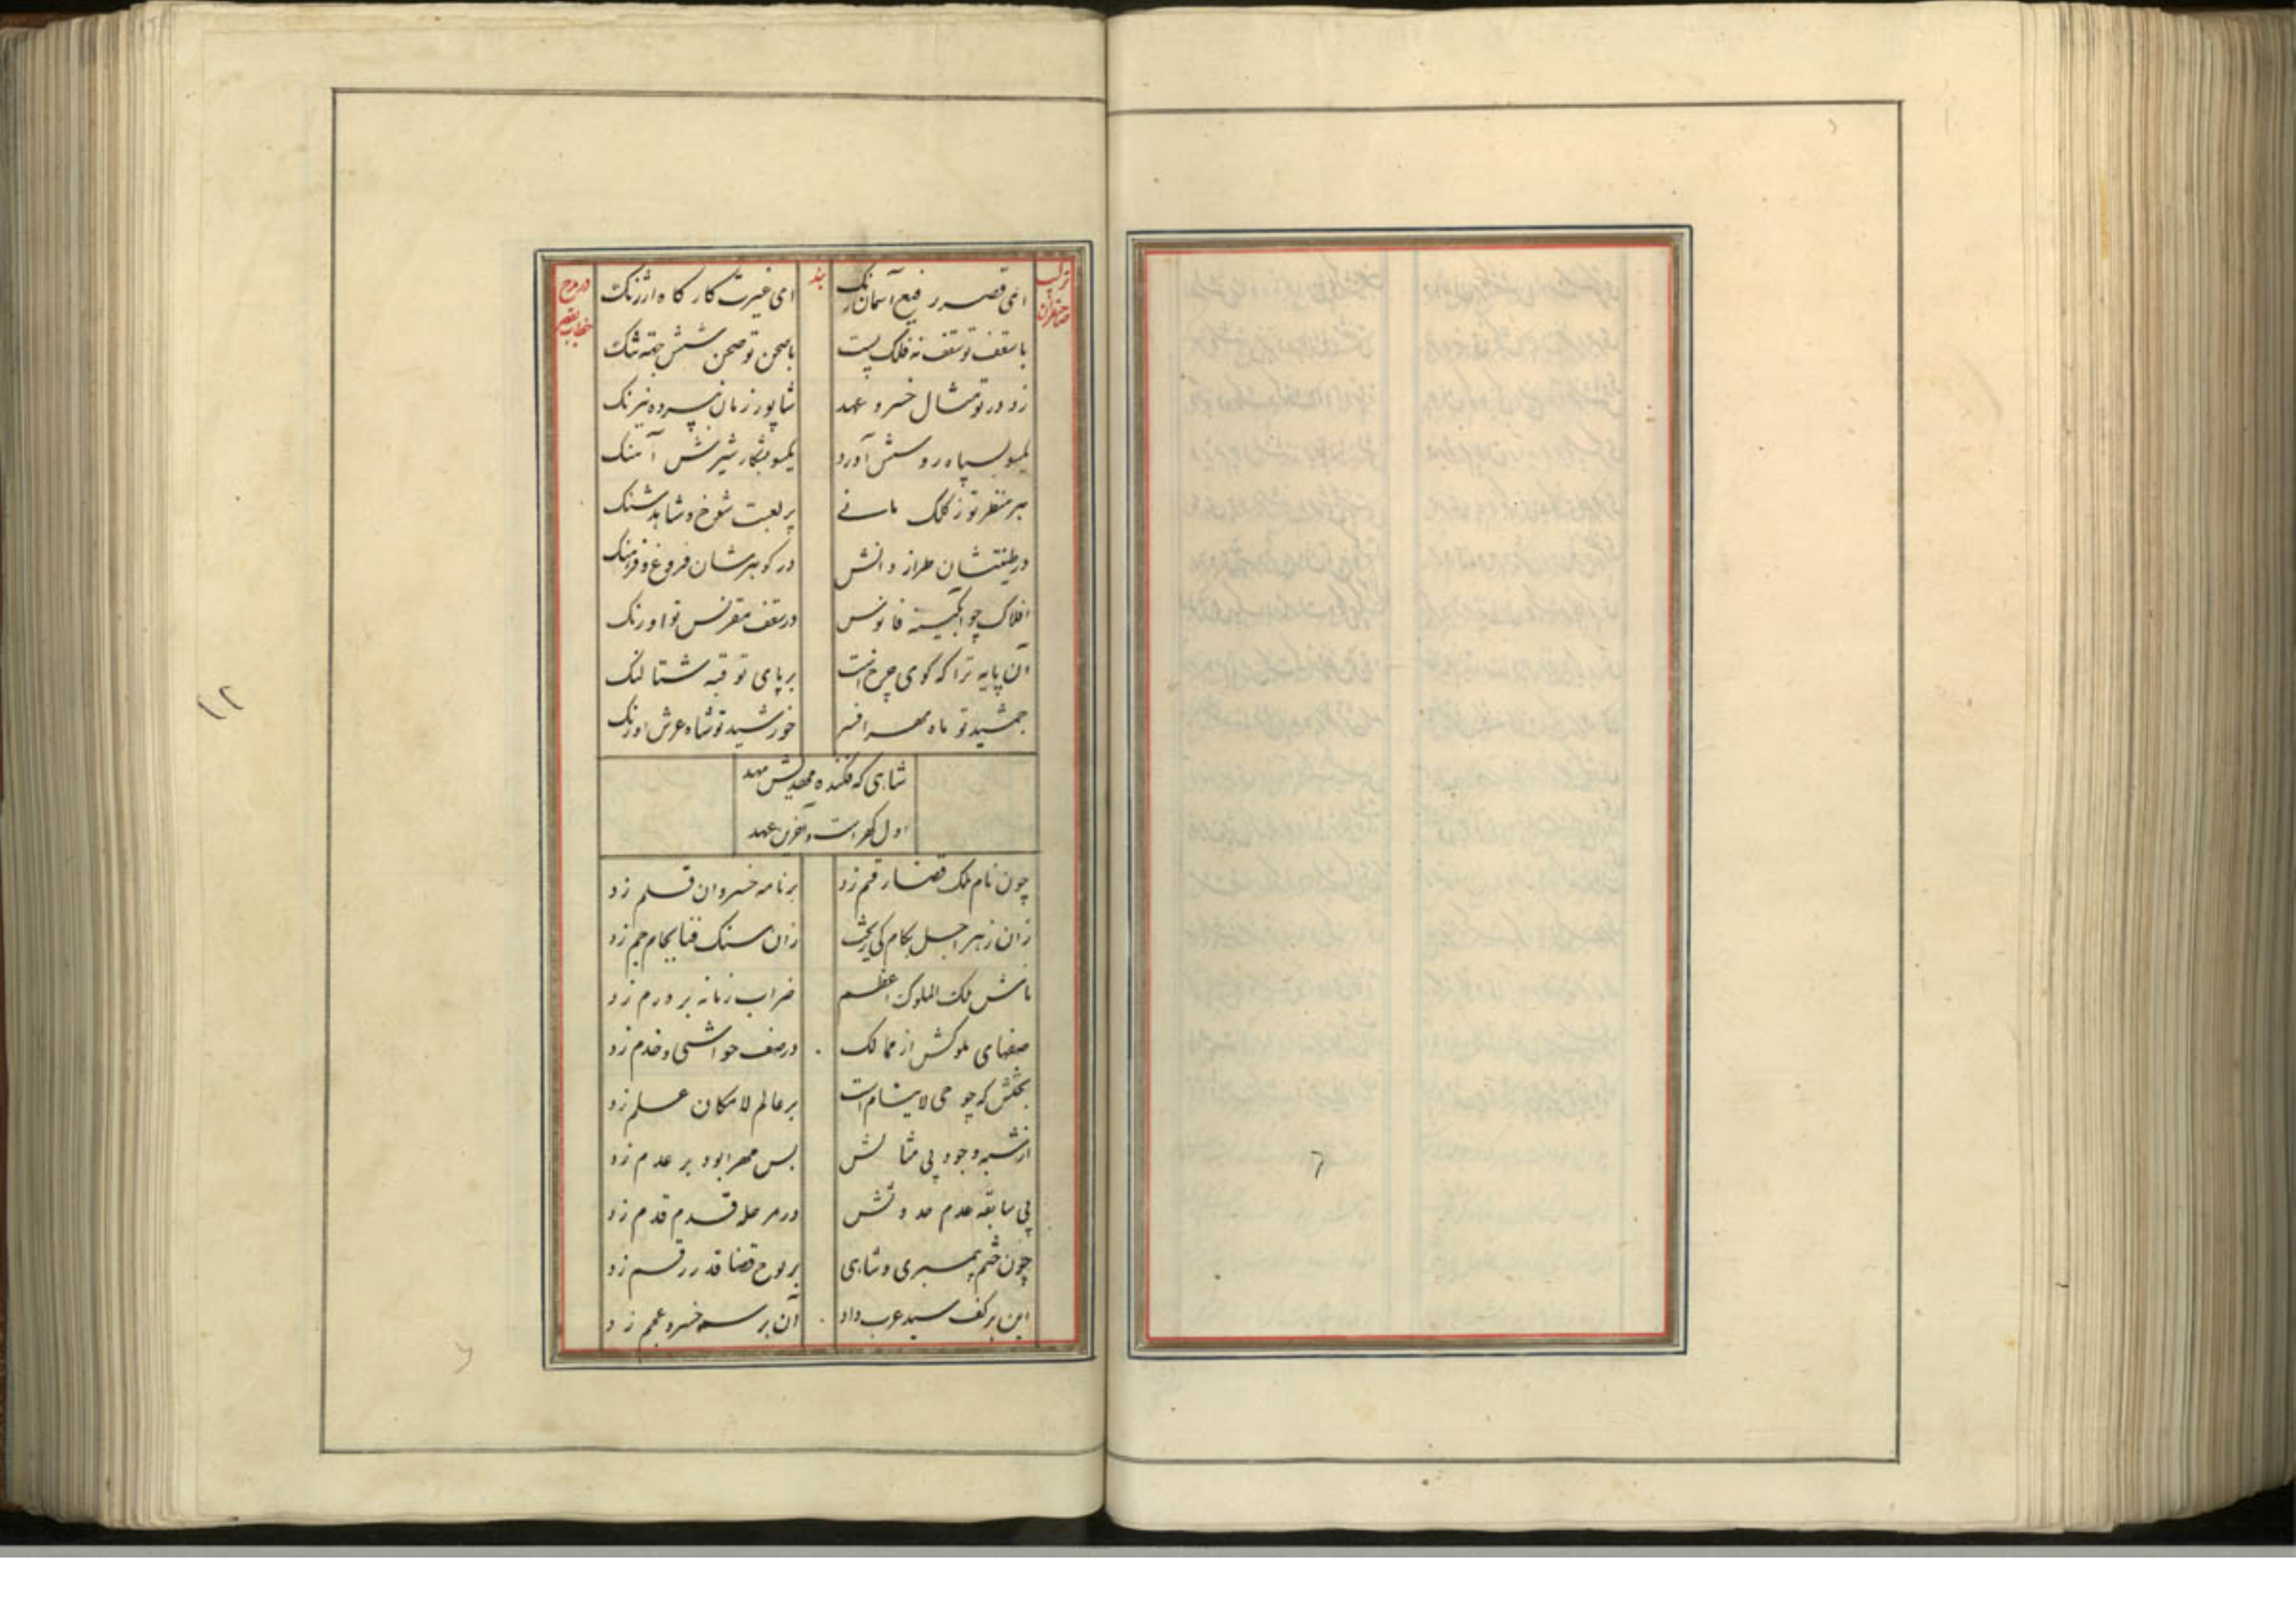 ترکیب بند در مدح
صاحبقران خطاب بقصر
ای قصر رفیع آسمان رنک ای غیرت کار کاه ارژنک
با سقف تو سقف نه فلک پست با صحن تو صحن شش جهة تنک
زد در تو مثال خسرو عهد شاپور زمان نیرنک
یکسو بسپاه روسش آورد یکسو بشکار شیرش آهنک
بر منظر تو ز کلک مانے پر لعبت شوخ و شاهد شنک
در طینتشان طراز دانش در کوهرشان فروغ و فرهنک
افلاک چو ابکینه فانوس در سقف مقرنس تو اورنک
آن پایه ترا که کوی چرخ است بر پای تو قبه شتالنک
جمشید تو ماه مهر افسر خورشید تو شاه عرش اورنک
شاهی که فکنده مهد
اول و آخرین عهد
چون نام ملک قضا رقم زد بر نامه خسروان قلم زد
زان زهر اجل بکام کی ریخت زان سنک فنا بجام جم زد
نامش ملک الملوک اعظم ضراب زمانه بر درم زد
صفهای ملوکش از ممالک در صف حواشی و خدم زد
بختش که چو حی لاینام است بر عالم لامکان علم زد
از شبه وجود بی مثالش بس مهر ابود بر عدم زد
بی سابقه عدم حدوثش در مرحله قدم قدم زد
چون ختم پیمبری و شاهی بر لوح قضا قدر رقم زد
این بر کف سید عرب داد آن بر سر خسرو عجم زد
۱۲